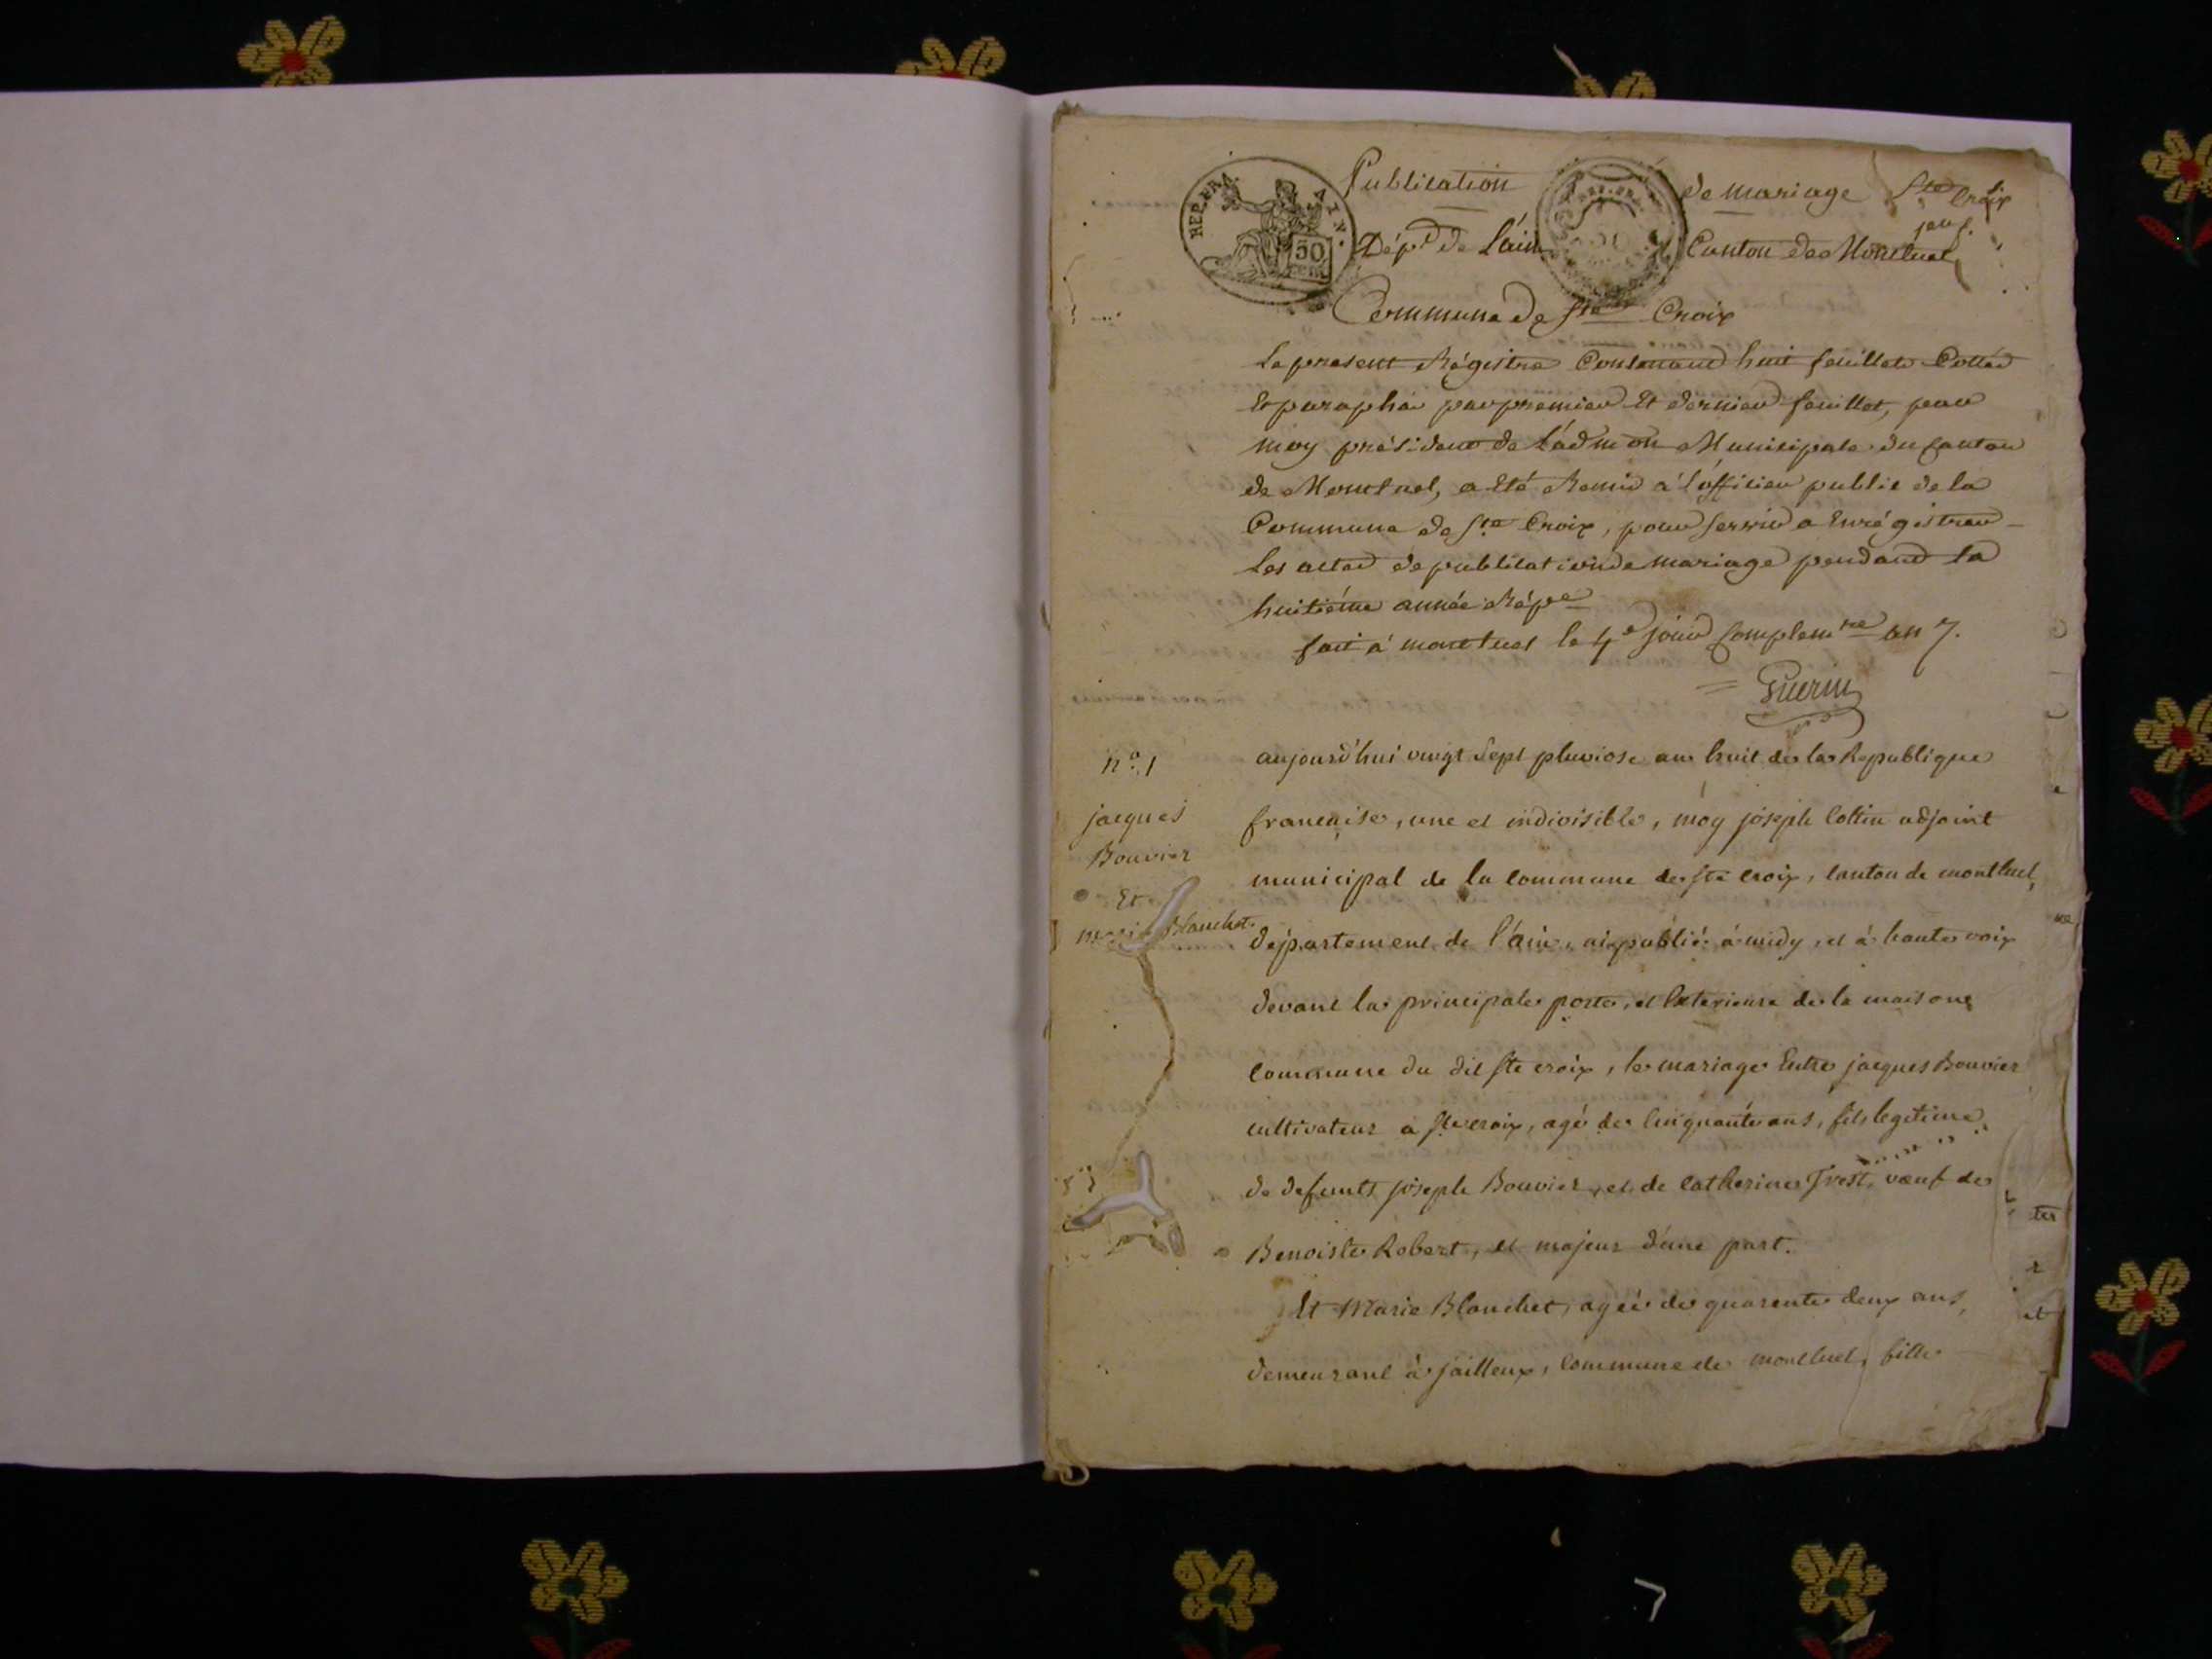 Publication de mariage Ste Croix
Dépt de L'ain Canton de Montluel
Commune de Ste Croix
Le present Régistre Contenand huit feuillets Cottéd
Et paraphé par premier Et dernier feuillet, par
moy président de L'adm̄on Municipale du Canton
de Montluel, a Eté Remis à l'officier public de la
Commune de Ste Croix, pour servir a Enrégistrer
Les actes de publication de mariage pendand la
huitiéme année Répe
fait à montluel le 4e jour Complemre an 7.
Guerin
no. 1
jacques
Bouvier
Et
marie Blanchet
aujourd'hui vingt sept pluviose an huit de la Republique
française, une et indivisible, moy joseph Cottin adjoint
municipal de la commune de ste croix, canton de montluel,
département de l'ain, ai publié à midy, et à haute voix
devant la principale porte, et Exterieure de la maison
commune du dit ste croix, le mariage Entre jacques Bouvier
cultivateur a ste croix, agé de cinquante ans, fils legitime
de defunts joseph Bouvier, et de catherine vœuf de
Benoiste Robert, et majeur d'une part.
Et Marie Blanchet, agée de quarente deux ans,
demeurant à jailleux, commune de montluel, fille
REP. FRA. AIN.
50
CEN.